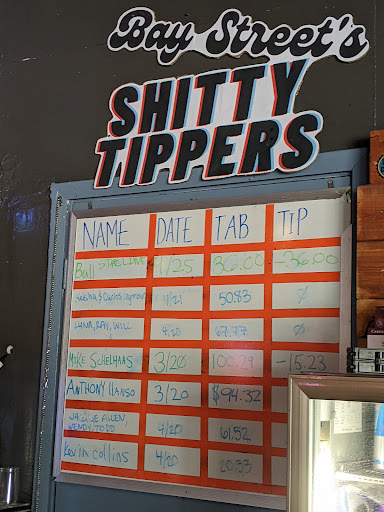 Bay Street's
SHITTY
TIPPERS
NAME DATE TAB TIP
Ball 4/25 36.00 -36.00
4/21 50.83 ø
LUNA, RAY, WILL 4/20 67.77 Ø
MIKE SCHELHAAS 3/20 100.29 -15.23
ANTHONY LLANSO 3/20 $94.32
WENDY, TODD 4/20 61.52
Kevin Collins 4/20 20.33